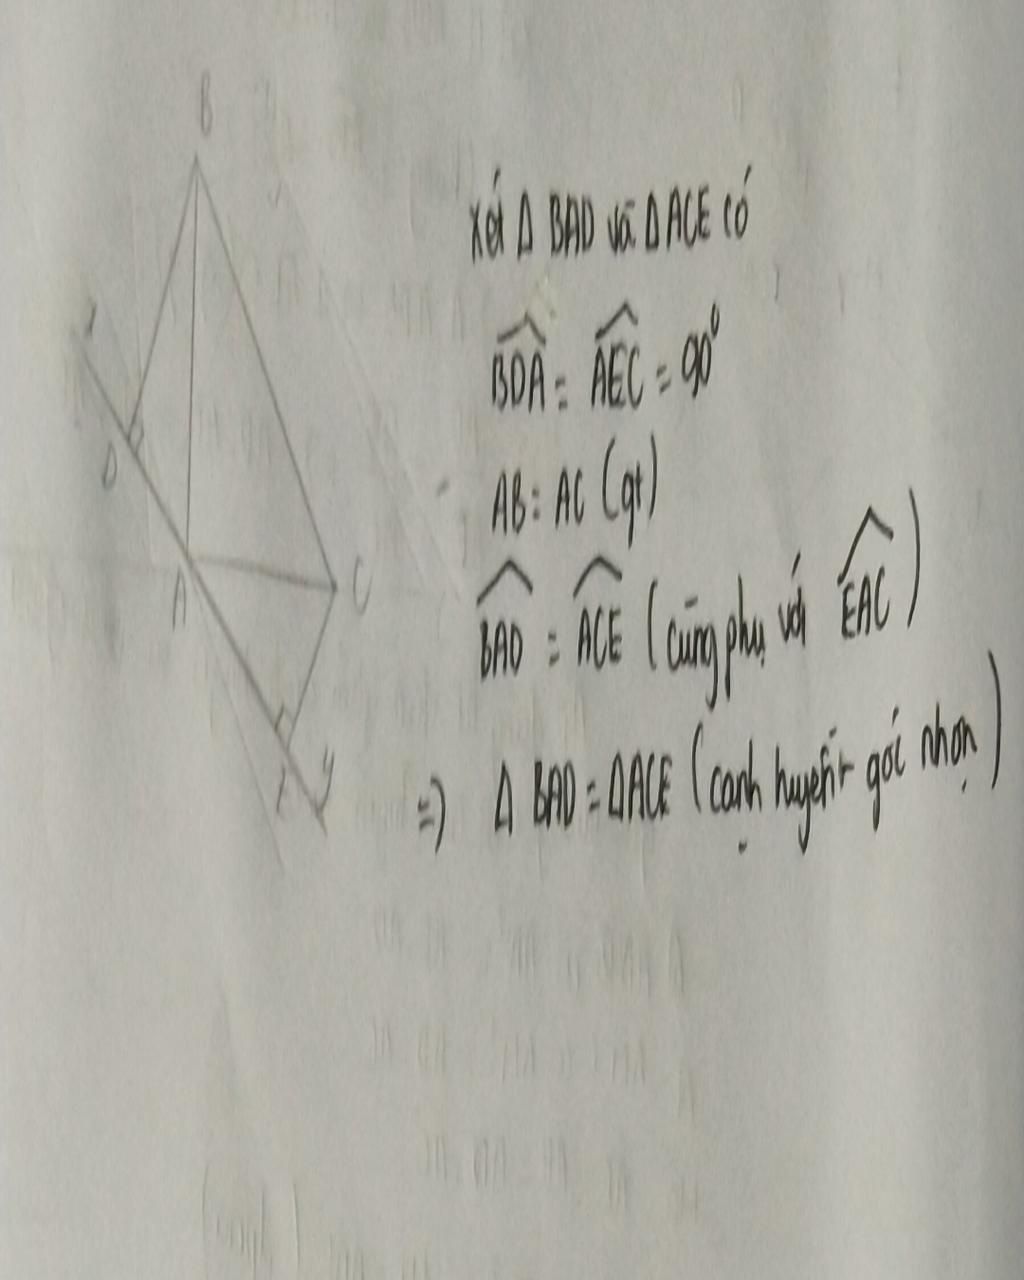 B
xét Δ BAD và Δ ACE có
x
BDA = AEC = 90⁰
D
AB = AC (gt)
A
C
BAD = ACE (cùng phụ với EAC)
E y
=> Δ BAD = Δ ACE (cạnh huyền - góc nhọn)